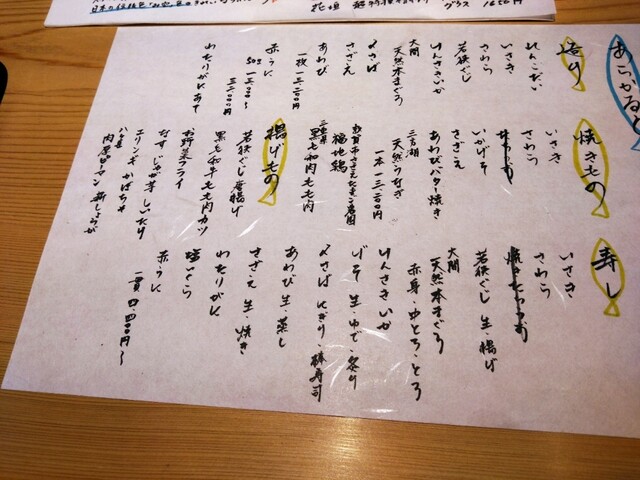 日本の伝統色
グラス 1650円
あらかると
造り
れんこだい
いさき
さわら
若狭ぐじ
けんさきいか
大間 天然本まぐろ
〆さば
さざえ
あわび
一枚 一三、二〇〇円
赤うに
50g 一三、〇〇〇〜
三三、〇〇〇円
わたりがにあて
焼きもの
いさき
さわら
いかげそ
さざえ
あわびバター焼き
三方湖 天然うなぎ
一本 一三、二〇〇円
福地鶏
黒毛和肉もも肉
揚げもの
若狭ぐじ 唐揚げ
黒毛和牛もも肉カツ
お野菜フライ
なす じゃが芋 しいたけ
エリンギ かぼちゃ
肉厚ピーマン 新しょうが
寿し
いさき
さわら
若狭ぐじ 生・揚げ
大間 天然本まぐろ
赤身・中とろ・とろ
けんさきいか
げそ 生・ゆで・炙り
〆さば にぎり・棒寿司
あわび 生・蒸し
さざえ 生・焼き
わたりがに
塩いくら
赤うに
一貫 四、四〇〇円〜